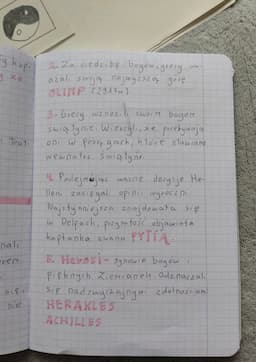 2. Za siedzibę bogów, grecy u-
ażali swoją najwyższą górę
OLIMP
3. Grecy wznosili swoim bogom
świątynie. Wierzyli, że przebywają
oni w posągach, które stawiano
wewnątrz świątyń.
4. Podejmując ważne decyzje He-
lleni zasięgali opinii wyroczni.
Najsłynniejsza znajdowała się
w Delfach, przyszłość objawiała
kapłanka zwana PYTIĄ
5. Herosi - synowie bogów i
pięknych Ziemianek. Odznaczali
się nadzwyczajnymi zdolnościami
HERAKLES
ACHILLES